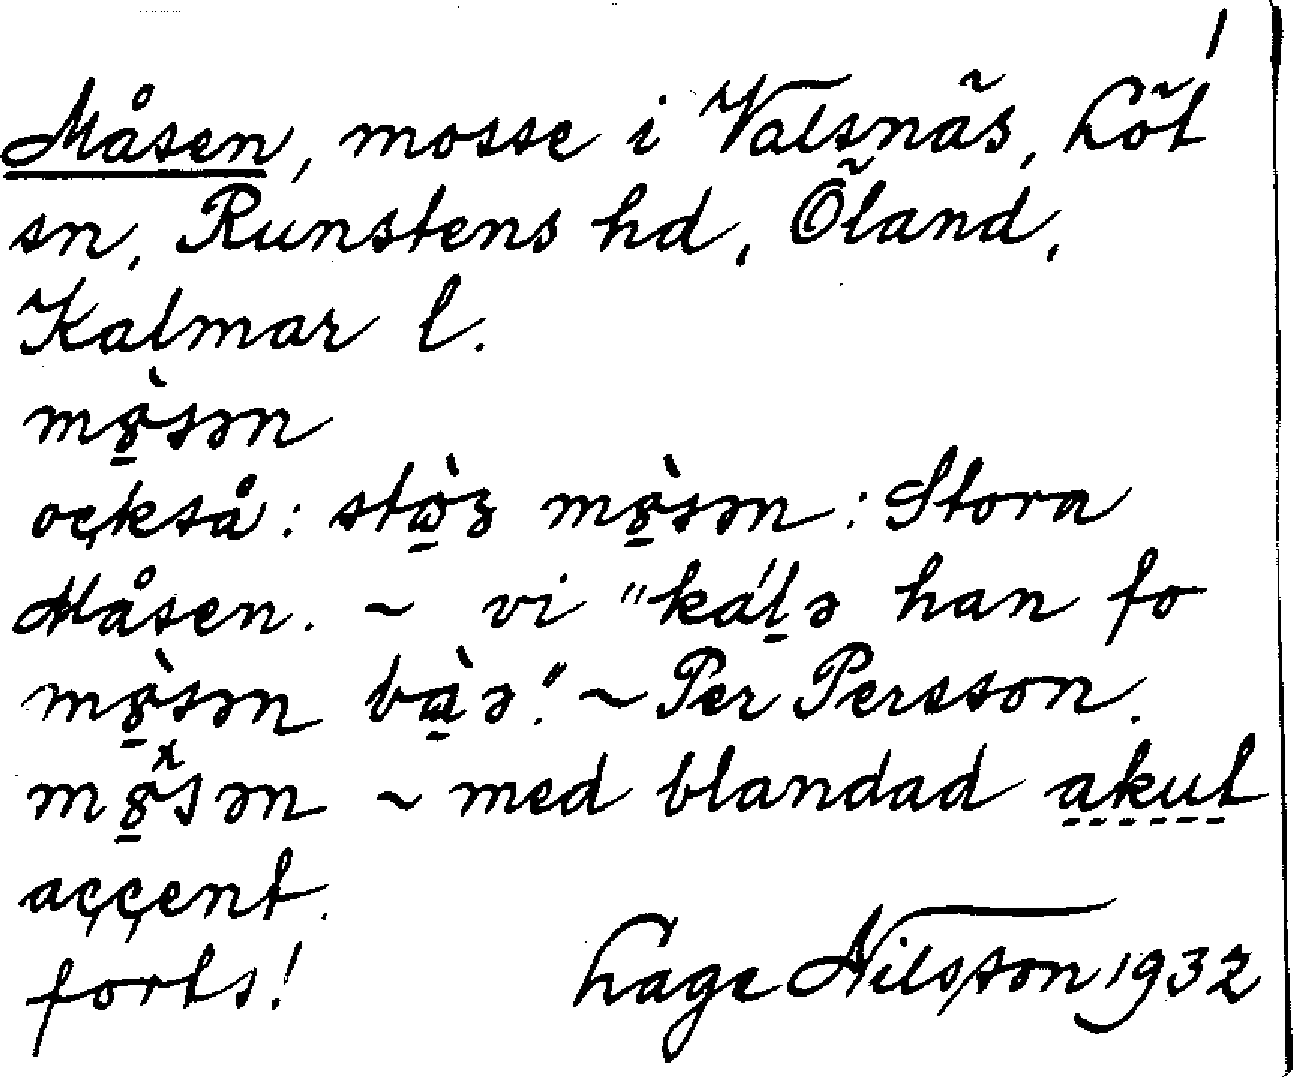 1
Måsen, mosse i Valsnäs, Löt
sn, Runstens hd, Öland,
Kalmar l.
mø̱̀sən
också: stɑ̱̀ʒ mø̱̀sən: Stora
Måsen. ~ vi "ká̱lə han fo
mø̱̀sən bɑ̱̀ə." ~ Per Persson.
mø̱̌sən ~ med blandad akut
accent.
forts! Lage Nilsson 1932